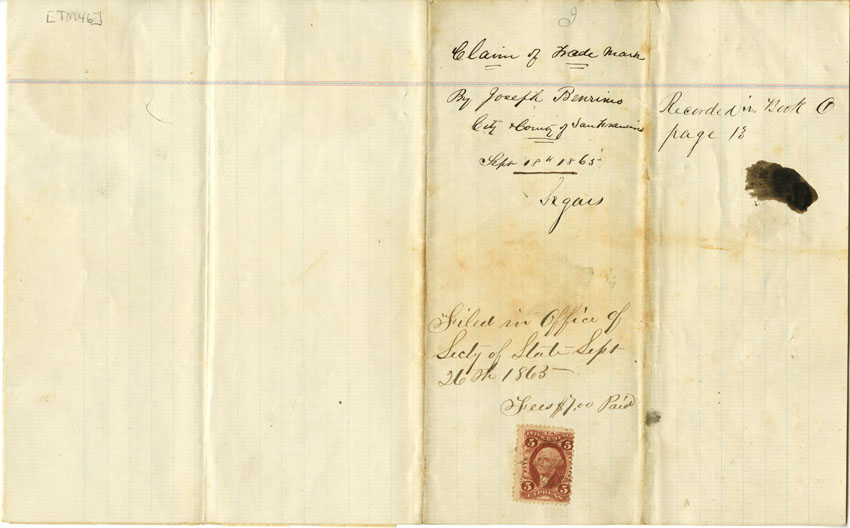 [TM46]
Claim of Trade Mark
By Joseph Benrimo
City & County of San Francisco
Sept 18th 1865
Segars
Recorded in Book
page 18
Filed in Office of
Secty of State Sept
26th 1865
Fees $7.00 Paid
5 5
5 5
EXPRESS